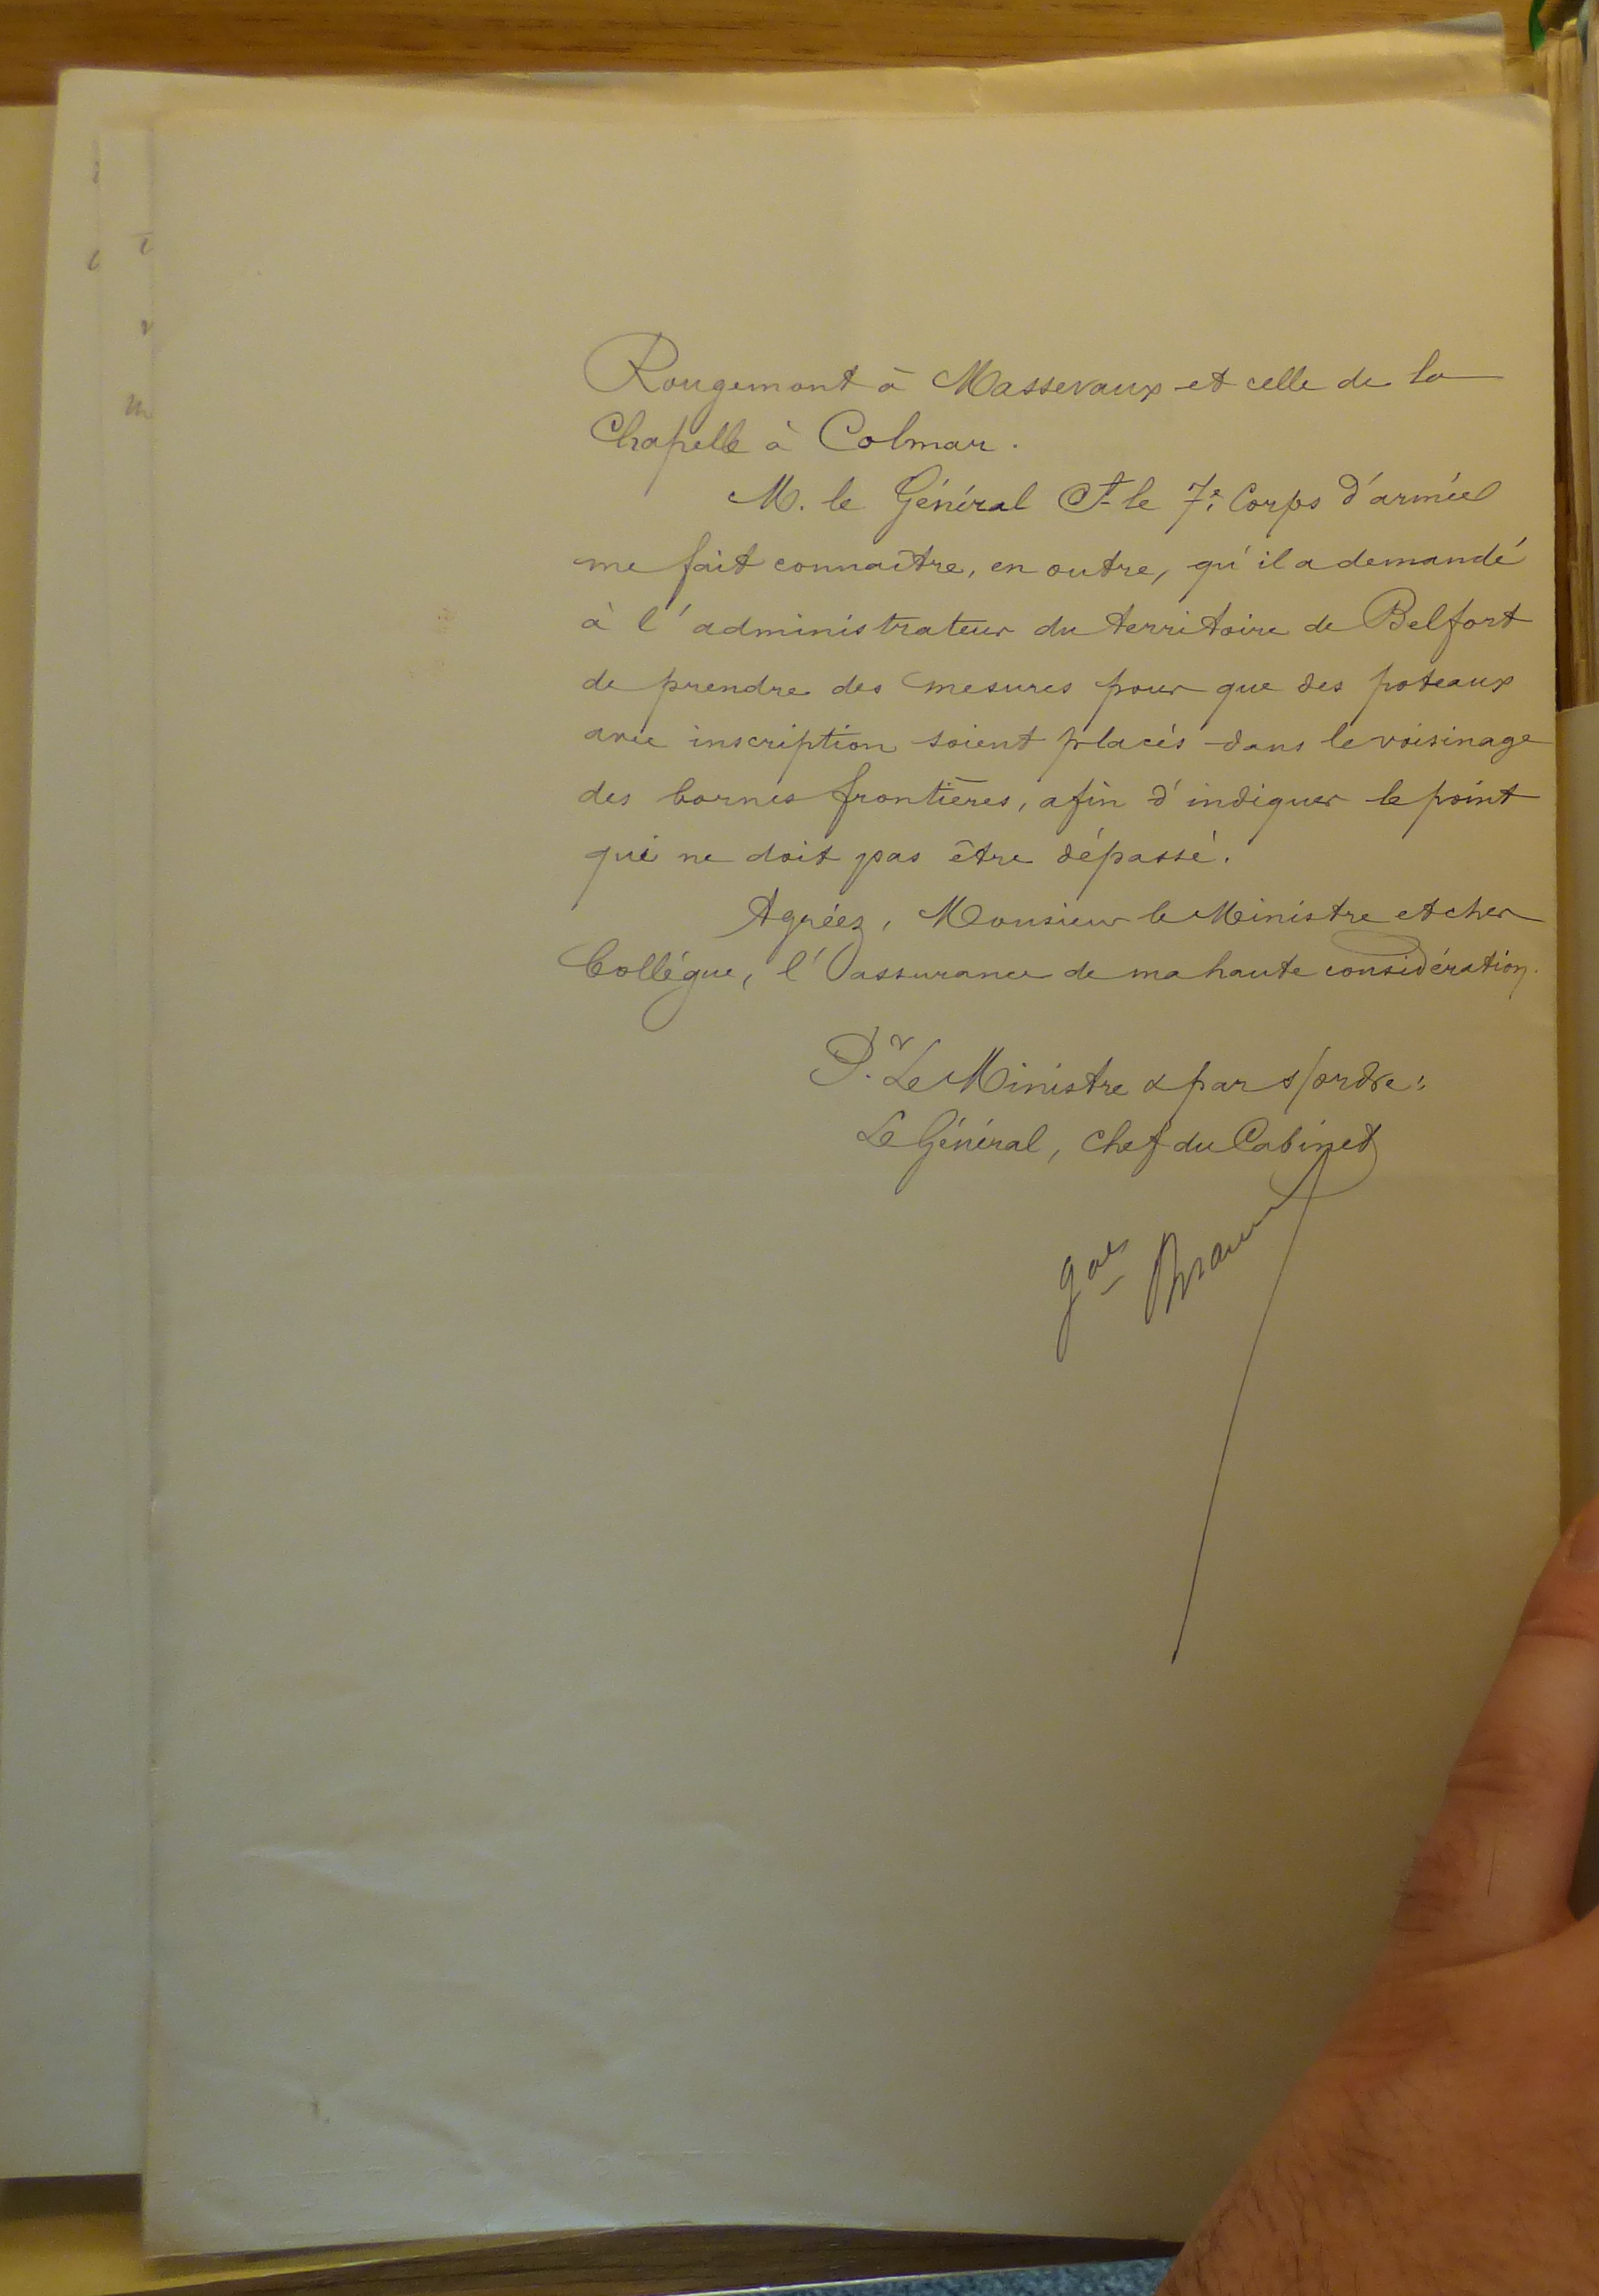 Rougemont à Massevaux et celle de la
Chapelle à Colmar.
M. le Général Ct le 7e Corps d'armée
me fait connaître, en outre, qu'il a demandé
à l'administrateur du territoire de Belfort
de prendre des mesures pour que des poteaux
avec inscription soient placés dans le voisinage
des bornes frontières, afin d'indiquer le point
qui ne doit pas être dépassé.
Agréez, Monsieur le Ministre et cher
Collégue, l'assurance de ma haute considération.
Pr. Le Ministre & par s/ordre:
Le Général, Chef du Cabinet
gal